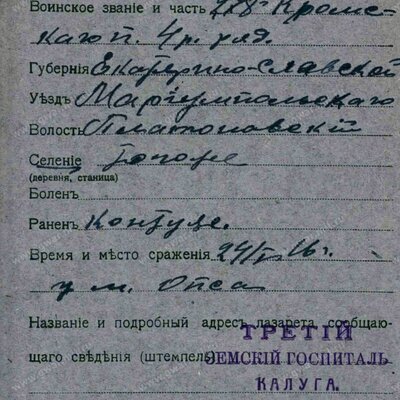 Воинское званіе и часть 278 Кромс-
каго п. 4 р. ряд.
Губернія Екатерино-Славской
Уѣздъ Маріупольскаго
Волость Платоновскій
Селеніе
(деревня, станица)
Боленъ
Раненъ Контуже.
Время и мѣсто сраженія 24/ 16 г.
у м. Опса
Названіе и подробный адресъ лазарета, сообщаю-
щаго свѣдѣнія (штемпель)
ТРЕТІЙ
ЗЕМСКІЙ ГОСПИТАЛЬ
КАЛУГА.